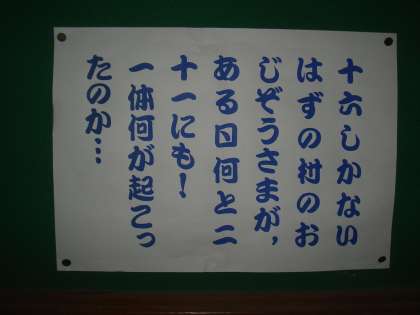 十六しかない
はずの村のお
じぞうさまが,
ある日何と二
十一にも!
一体何が起こっ
たのか…